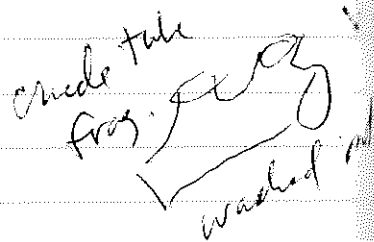 crude tube
frag.
washed